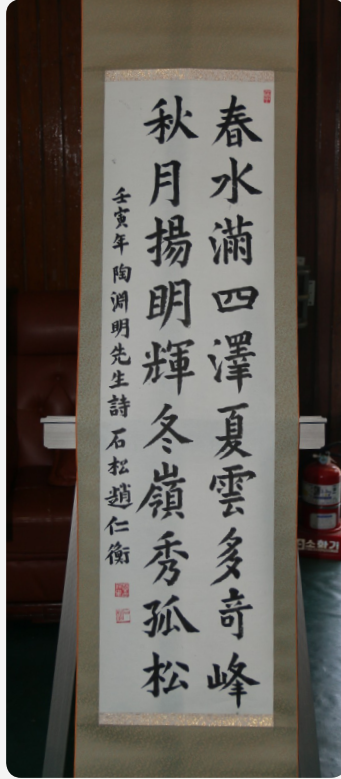 春水滿四澤夏雲多奇峰
秋月揚明輝冬嶺秀孤松
壬寅年陶淵明先生詩 石松趙仁衡
소화기